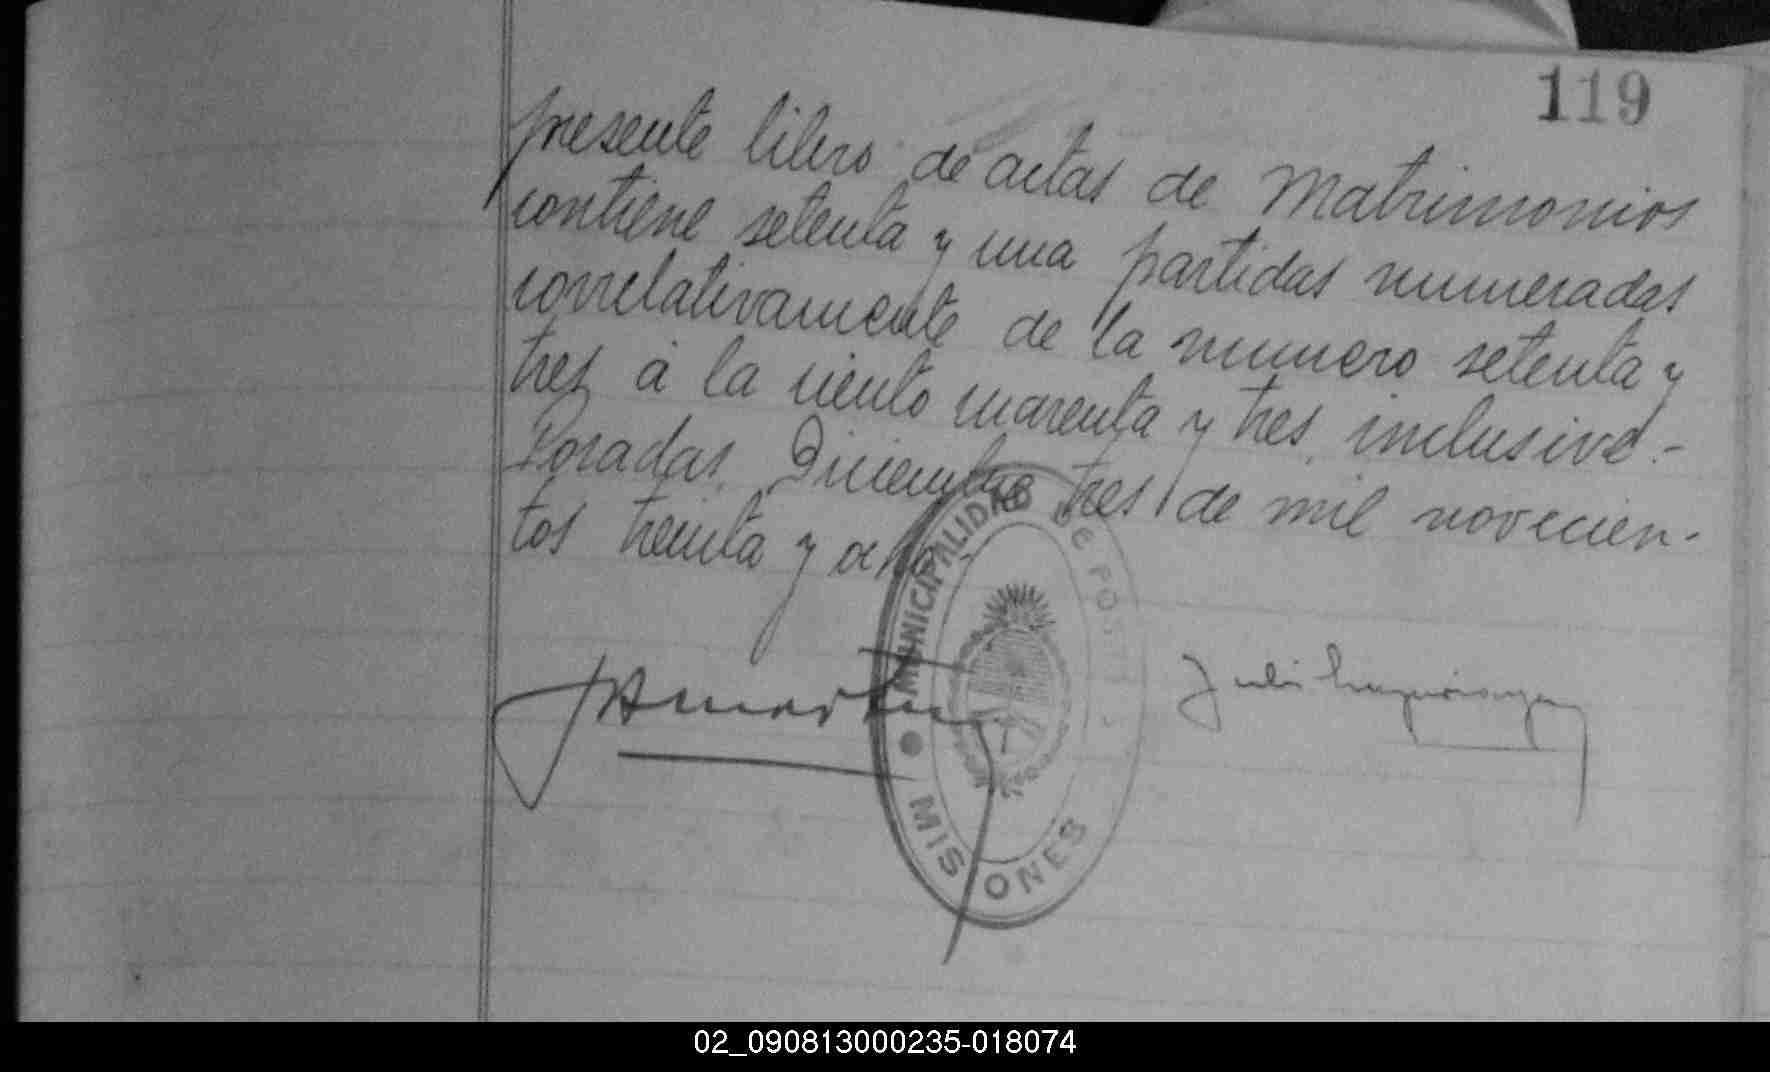 119
presente libro de actas de Matrimonios
contiene setenta y una partidas numeradas
correlativamente de la numero setenta y
tres á la ciento cuarenta y tres, inclusive.-
Posadas, Diciembre tres de mil novecien-
tos treinta y ocho
MUNICIPALIDAD DE POSADAS
MISIONES
02_090813000235-018074